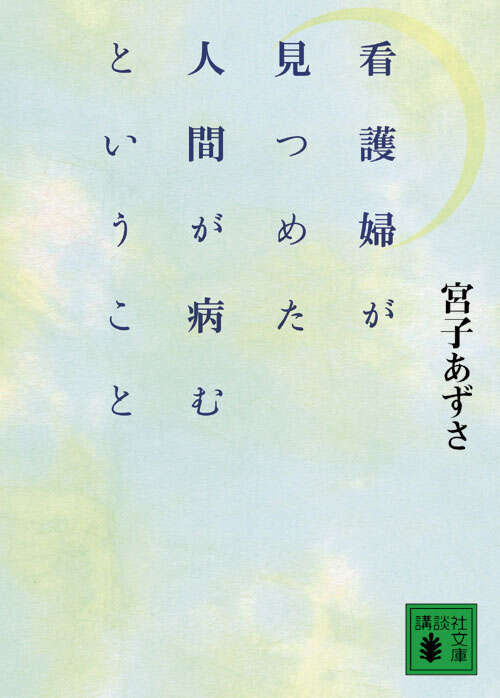 看護婦が
見つめた
人間が病む
ということ
宮子あずさ
講談社
文庫